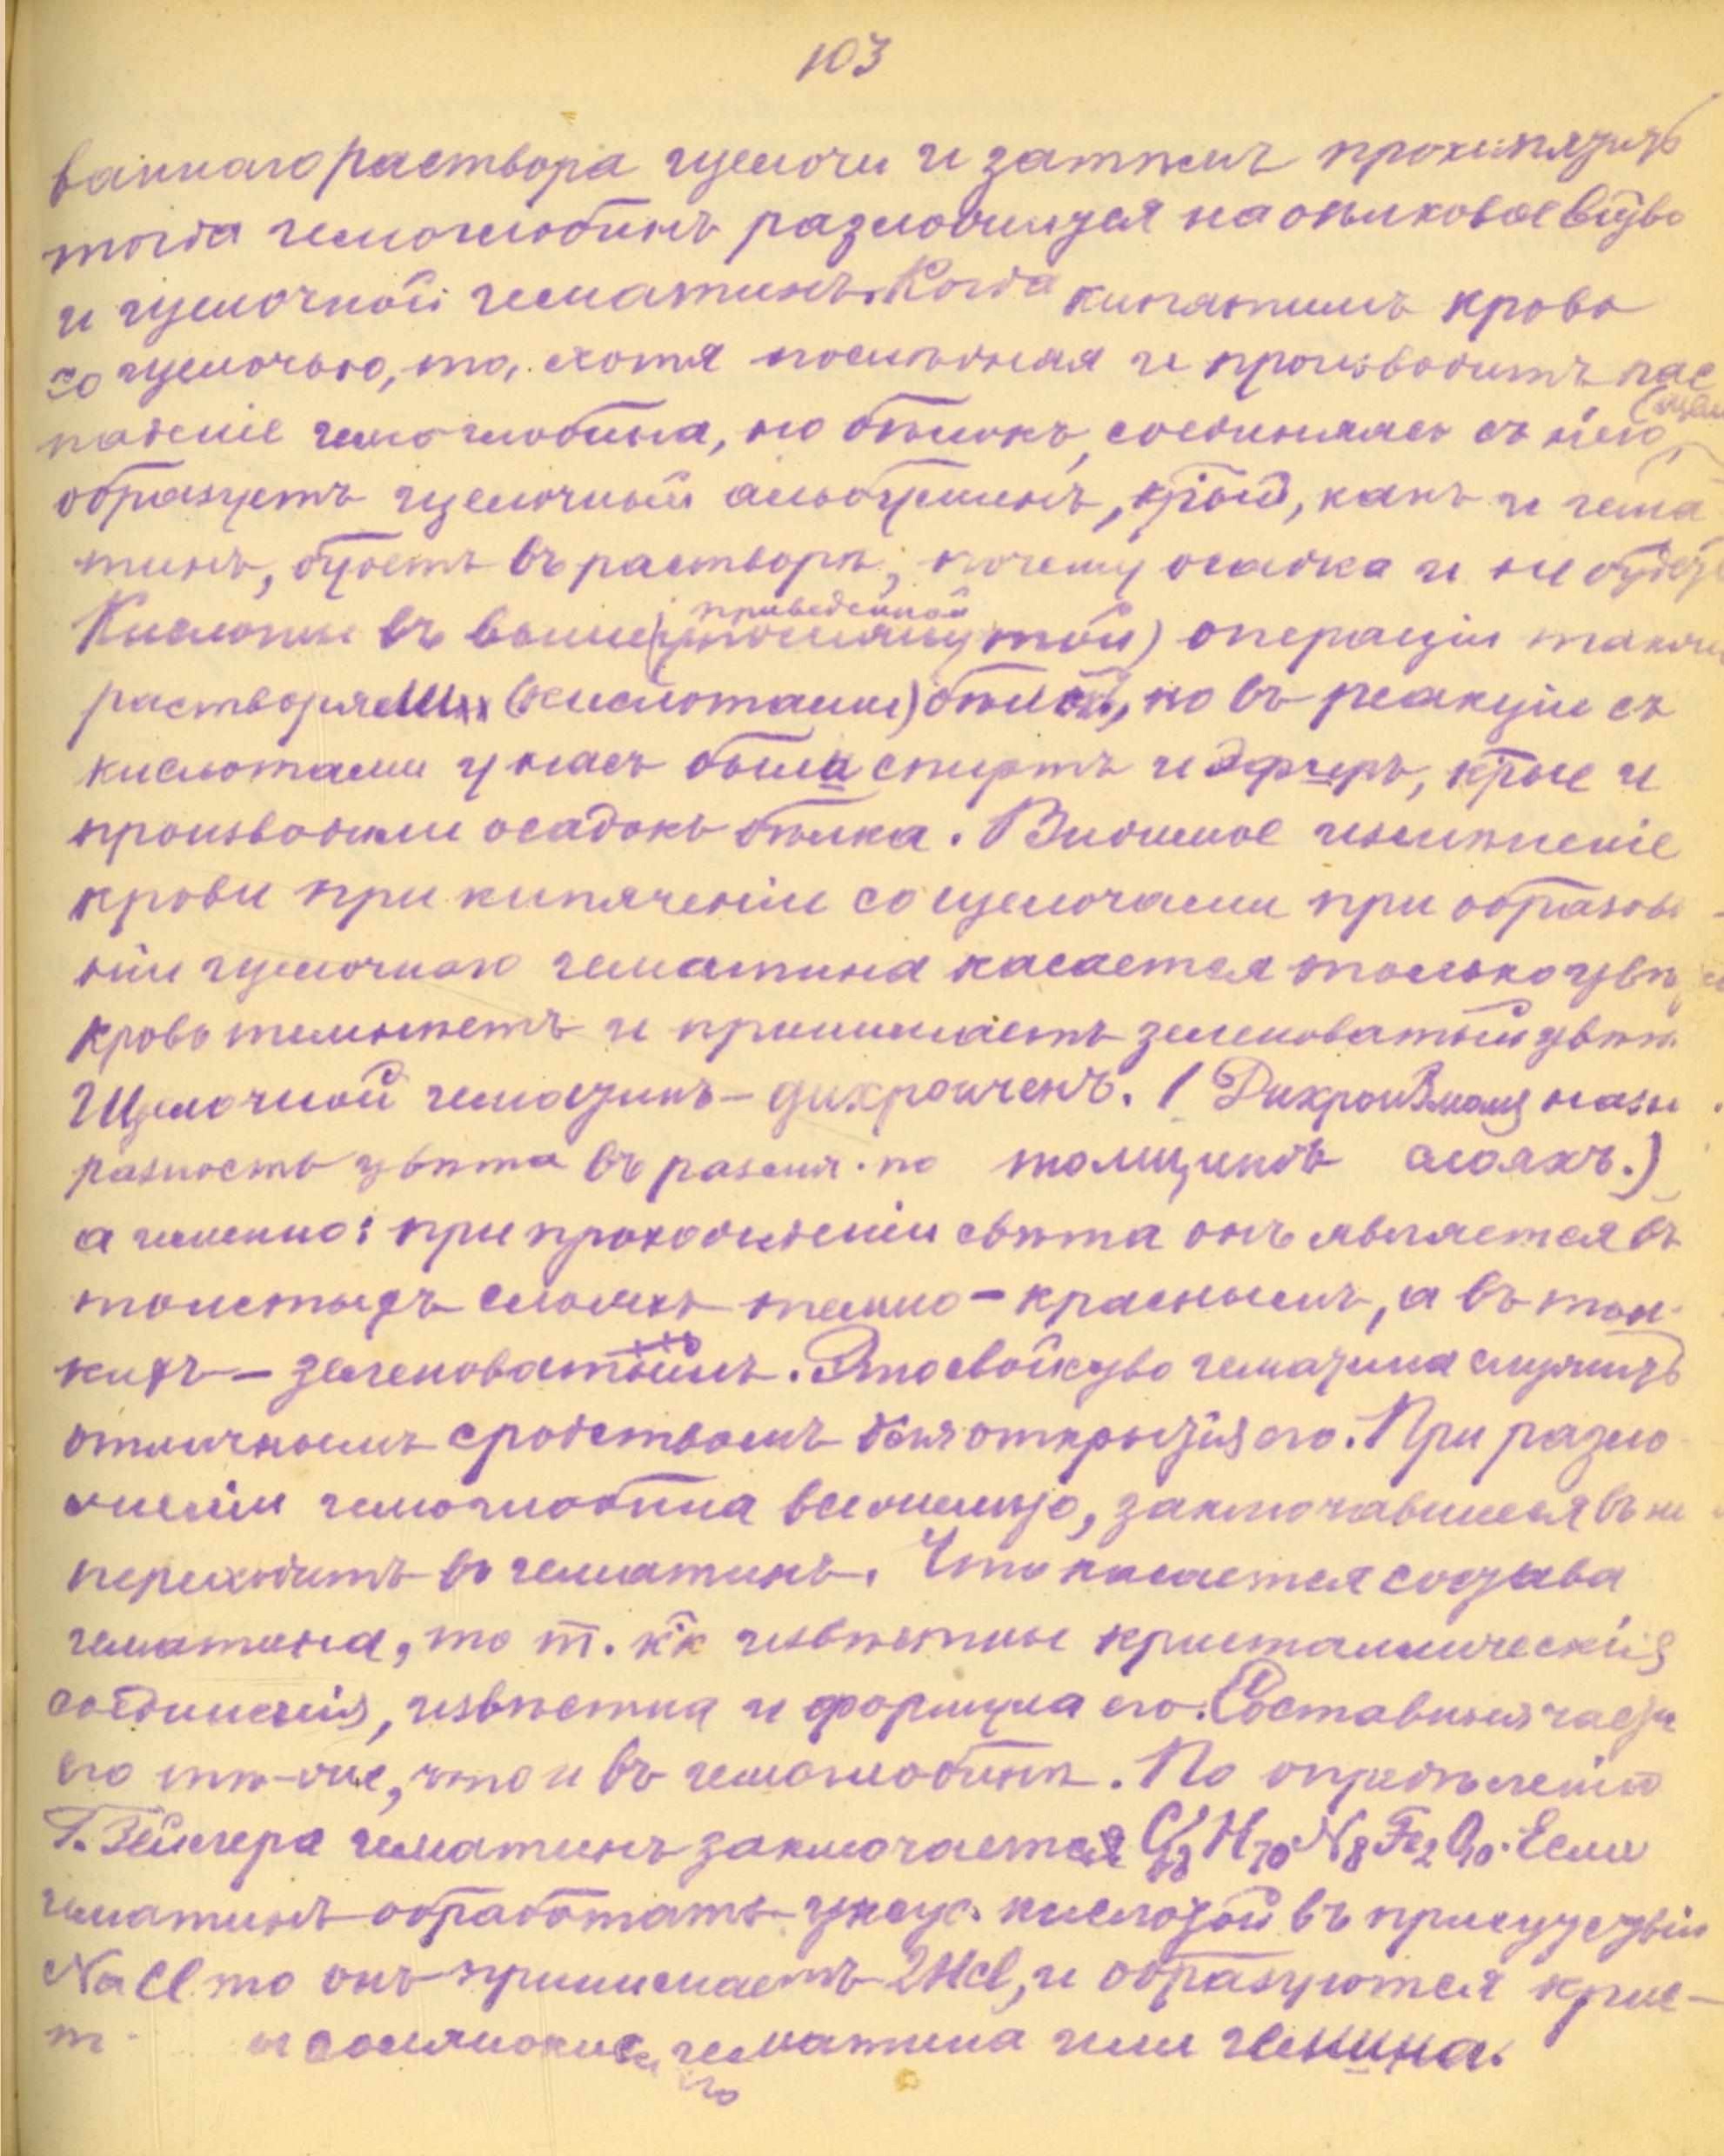 103
ваннаго раствора щелочи и затѣмъ прокипятить
тогда гемоглобинъ разложится на бѣлковое в-ство
и щелочной гематинъ. Когда кипятимъ кровь
со щелочью, то, хотя послѣдняя и производитъ рас
паденіе гемоглобина, но бѣлокъ, соединяясь съ нею
образуетъ щелочный альбуминъ, к-рый, какъ и гема
тинъ, будетъ въ растворѣ, почему осадка и не будетъ
приведенной
Кислоты въ выше(упомянутой) операціи также
растворяли (кислотами) бѣлокъ, но въ реакціи съ
кислотами у насъ были спиртъ и эфиръ, к-рые и
производили осадокъ бѣлка. Видимое измѣненіе
крови при кипяченіи со щелочами при образова
ніи щелочнаго гематина касается только цвѣ
кровь темнѣетъ и принимаетъ зеленоватый цвѣтъ.
Щелочной гематинъ – дихроиченъ. ( Дихроизмомъ назы
разность цвѣта въ различ. по толщинѣ слояхъ.)
а именно: при прохожденіи свѣта онъ является въ
толстыхъ слояхъ темно-краснымъ, а въ тон-
кихъ – зеленоватымъ. Это свойство гематина служитъ
отличнымъ средствомъ для открытія его. При разло
женіи гемоглобина все желѣзо, заключавшееся въ не
переходитъ въ гематинъ. Что касается состава
гематина, то т. к-къ извѣстны кристаллическія
соединенія, извѣстна и формула его. Составныя части
его тѣ-же, что и въ гемоглобинѣ. По опредѣленію
Г. Зейлера гематинъ заключается C68 H70 N8 Fe2 O10. Если
гематинъ обработать уксус. кислотой въ присутствіи
NaCl то онъ принимаетъ 2HCl, и образуются крис-
т солянокис. гематина или гемина.